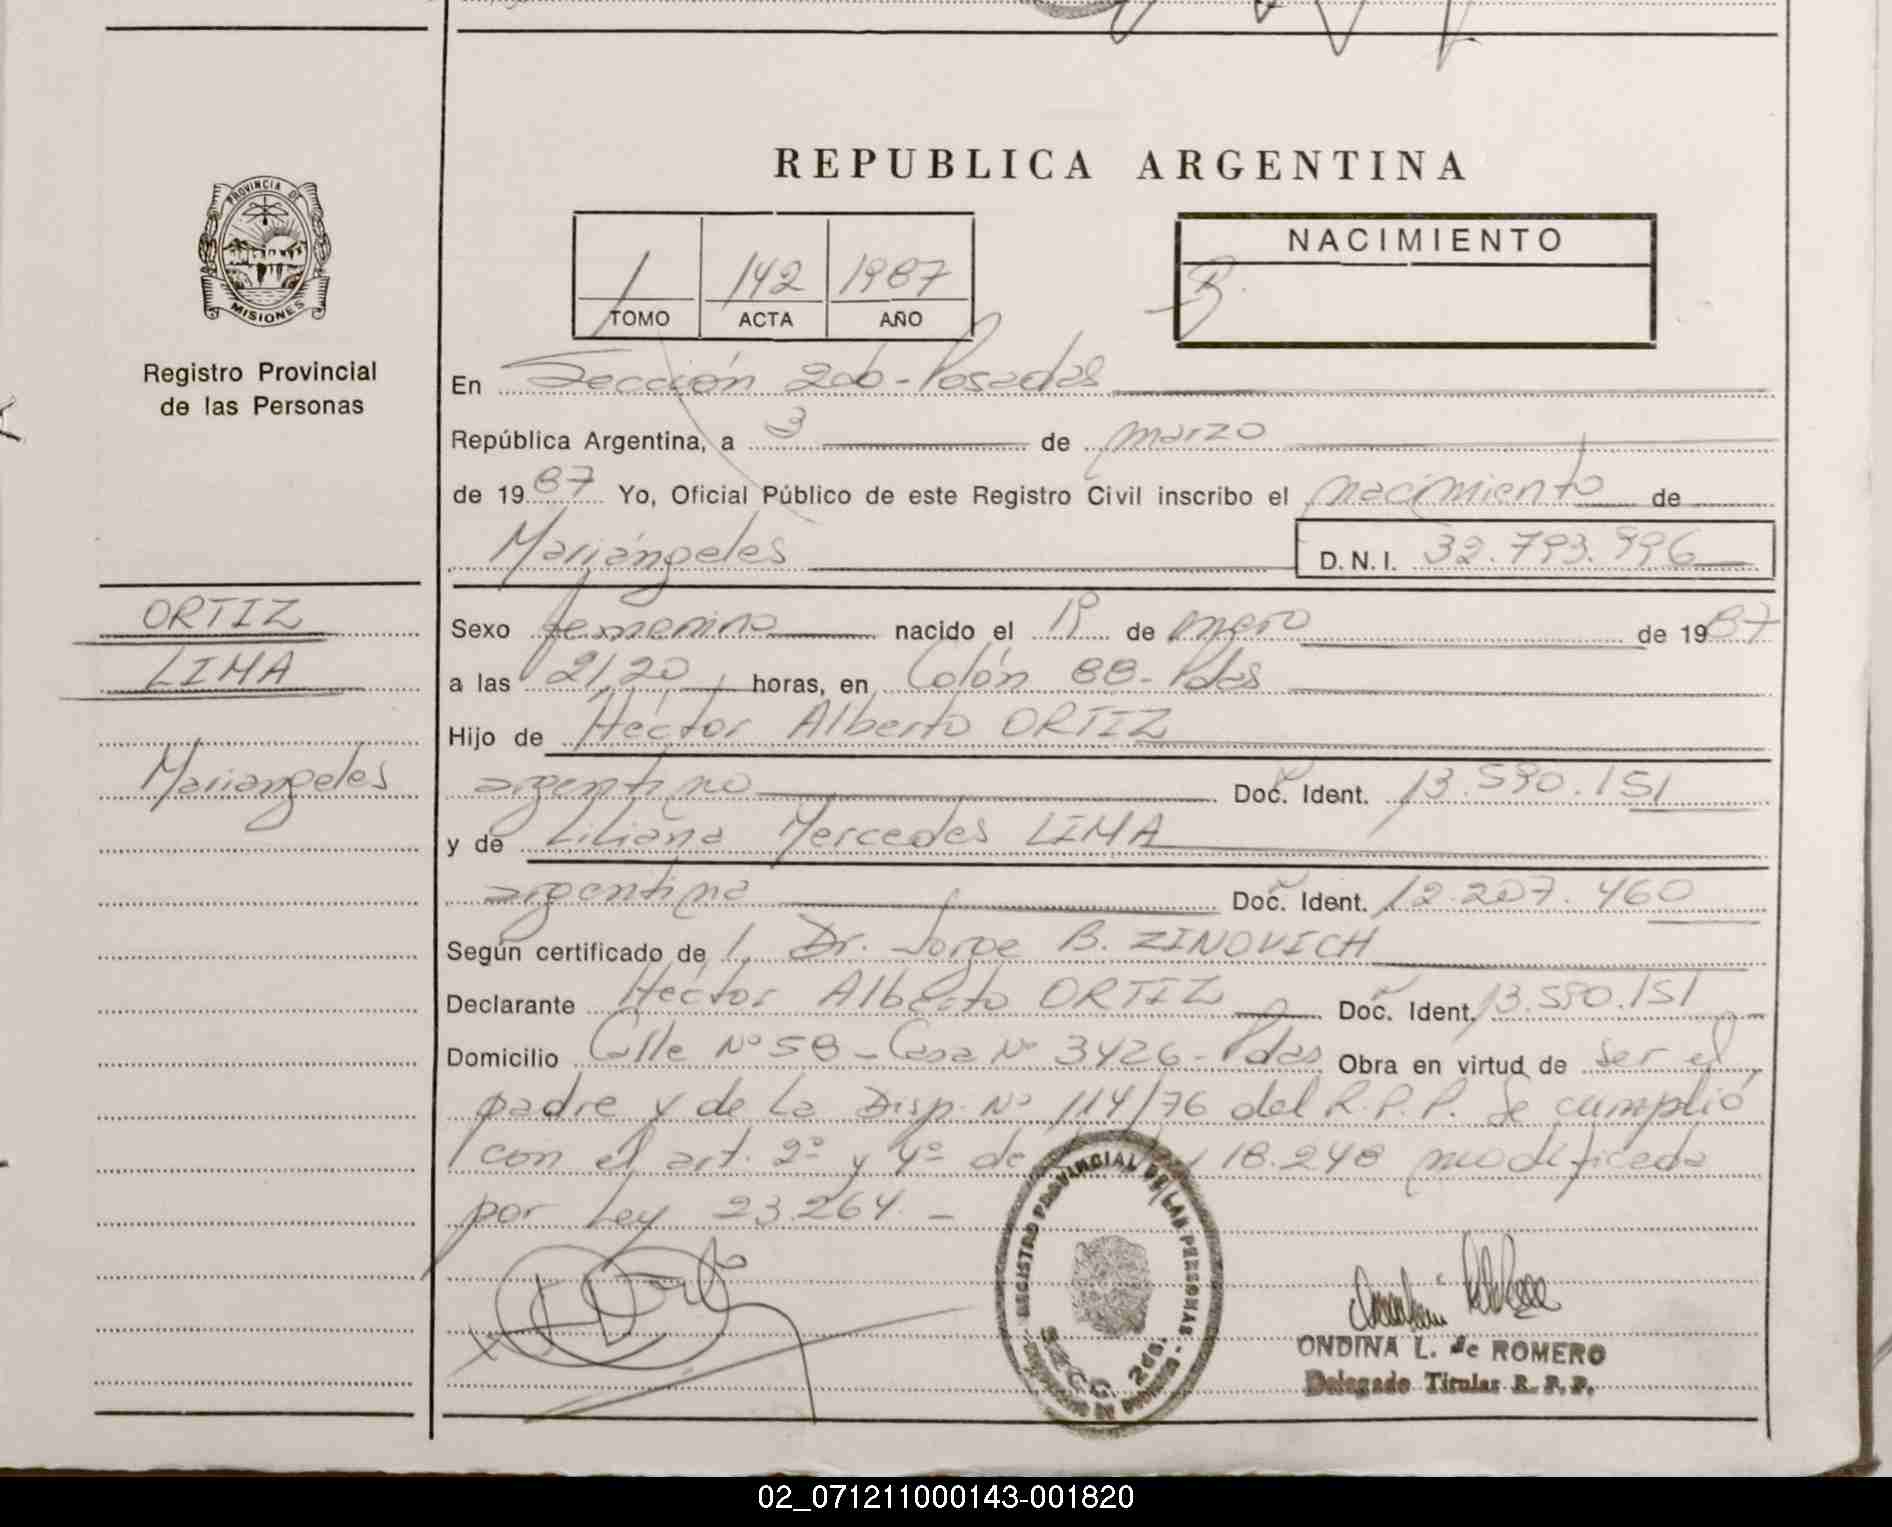 REPUBLICA ARGENTINA
PROVINCIA DE
MISIONES
Registro Provincial
de las Personas
1 142 1987
TOMO ACTA AÑO
NACIMIENTO
En Sección 2da - Posadas
República Argentina, a 3 de marzo
de 1987 Yo, Oficial Público de este Registro Civil inscribo el nacimiento de
Mariángeles D.N.I. 32.793.996
ORTIZ
LIMA
Mariangeles
Sexo femenino nacido el 19 de enero de 1987
a las 21,20 horas, en Colón 88 - Pdas
Hijo de Héctor Alberto ORTIZ
argentino Doc. Ident. 13.590.151
y de Liliana Mercedes LIMA
argentina Doc. Ident. 12.207.460
Según certificado de l. Dr. Jorge B. ZINOVICH
Declarante Héctor Alberto ORTIZ Doc. Ident. 13.590.151
Domicilio Calle Nº 58 - Casa Nº 3426 - Pdas Obra en virtud de ser el
padre y de la Disp. Nº 114/76 del R.P.P. Se cumplió
con el art. 2º y 4º de 18.248 modificada
por Ley 23.264. -
REGISTRO PROVINCIAL DE LAS PERSONAS
SECC. 2da.
ONDINA L. de ROMERO
Delegado Titular R. P. P.
02_071211000143-001820